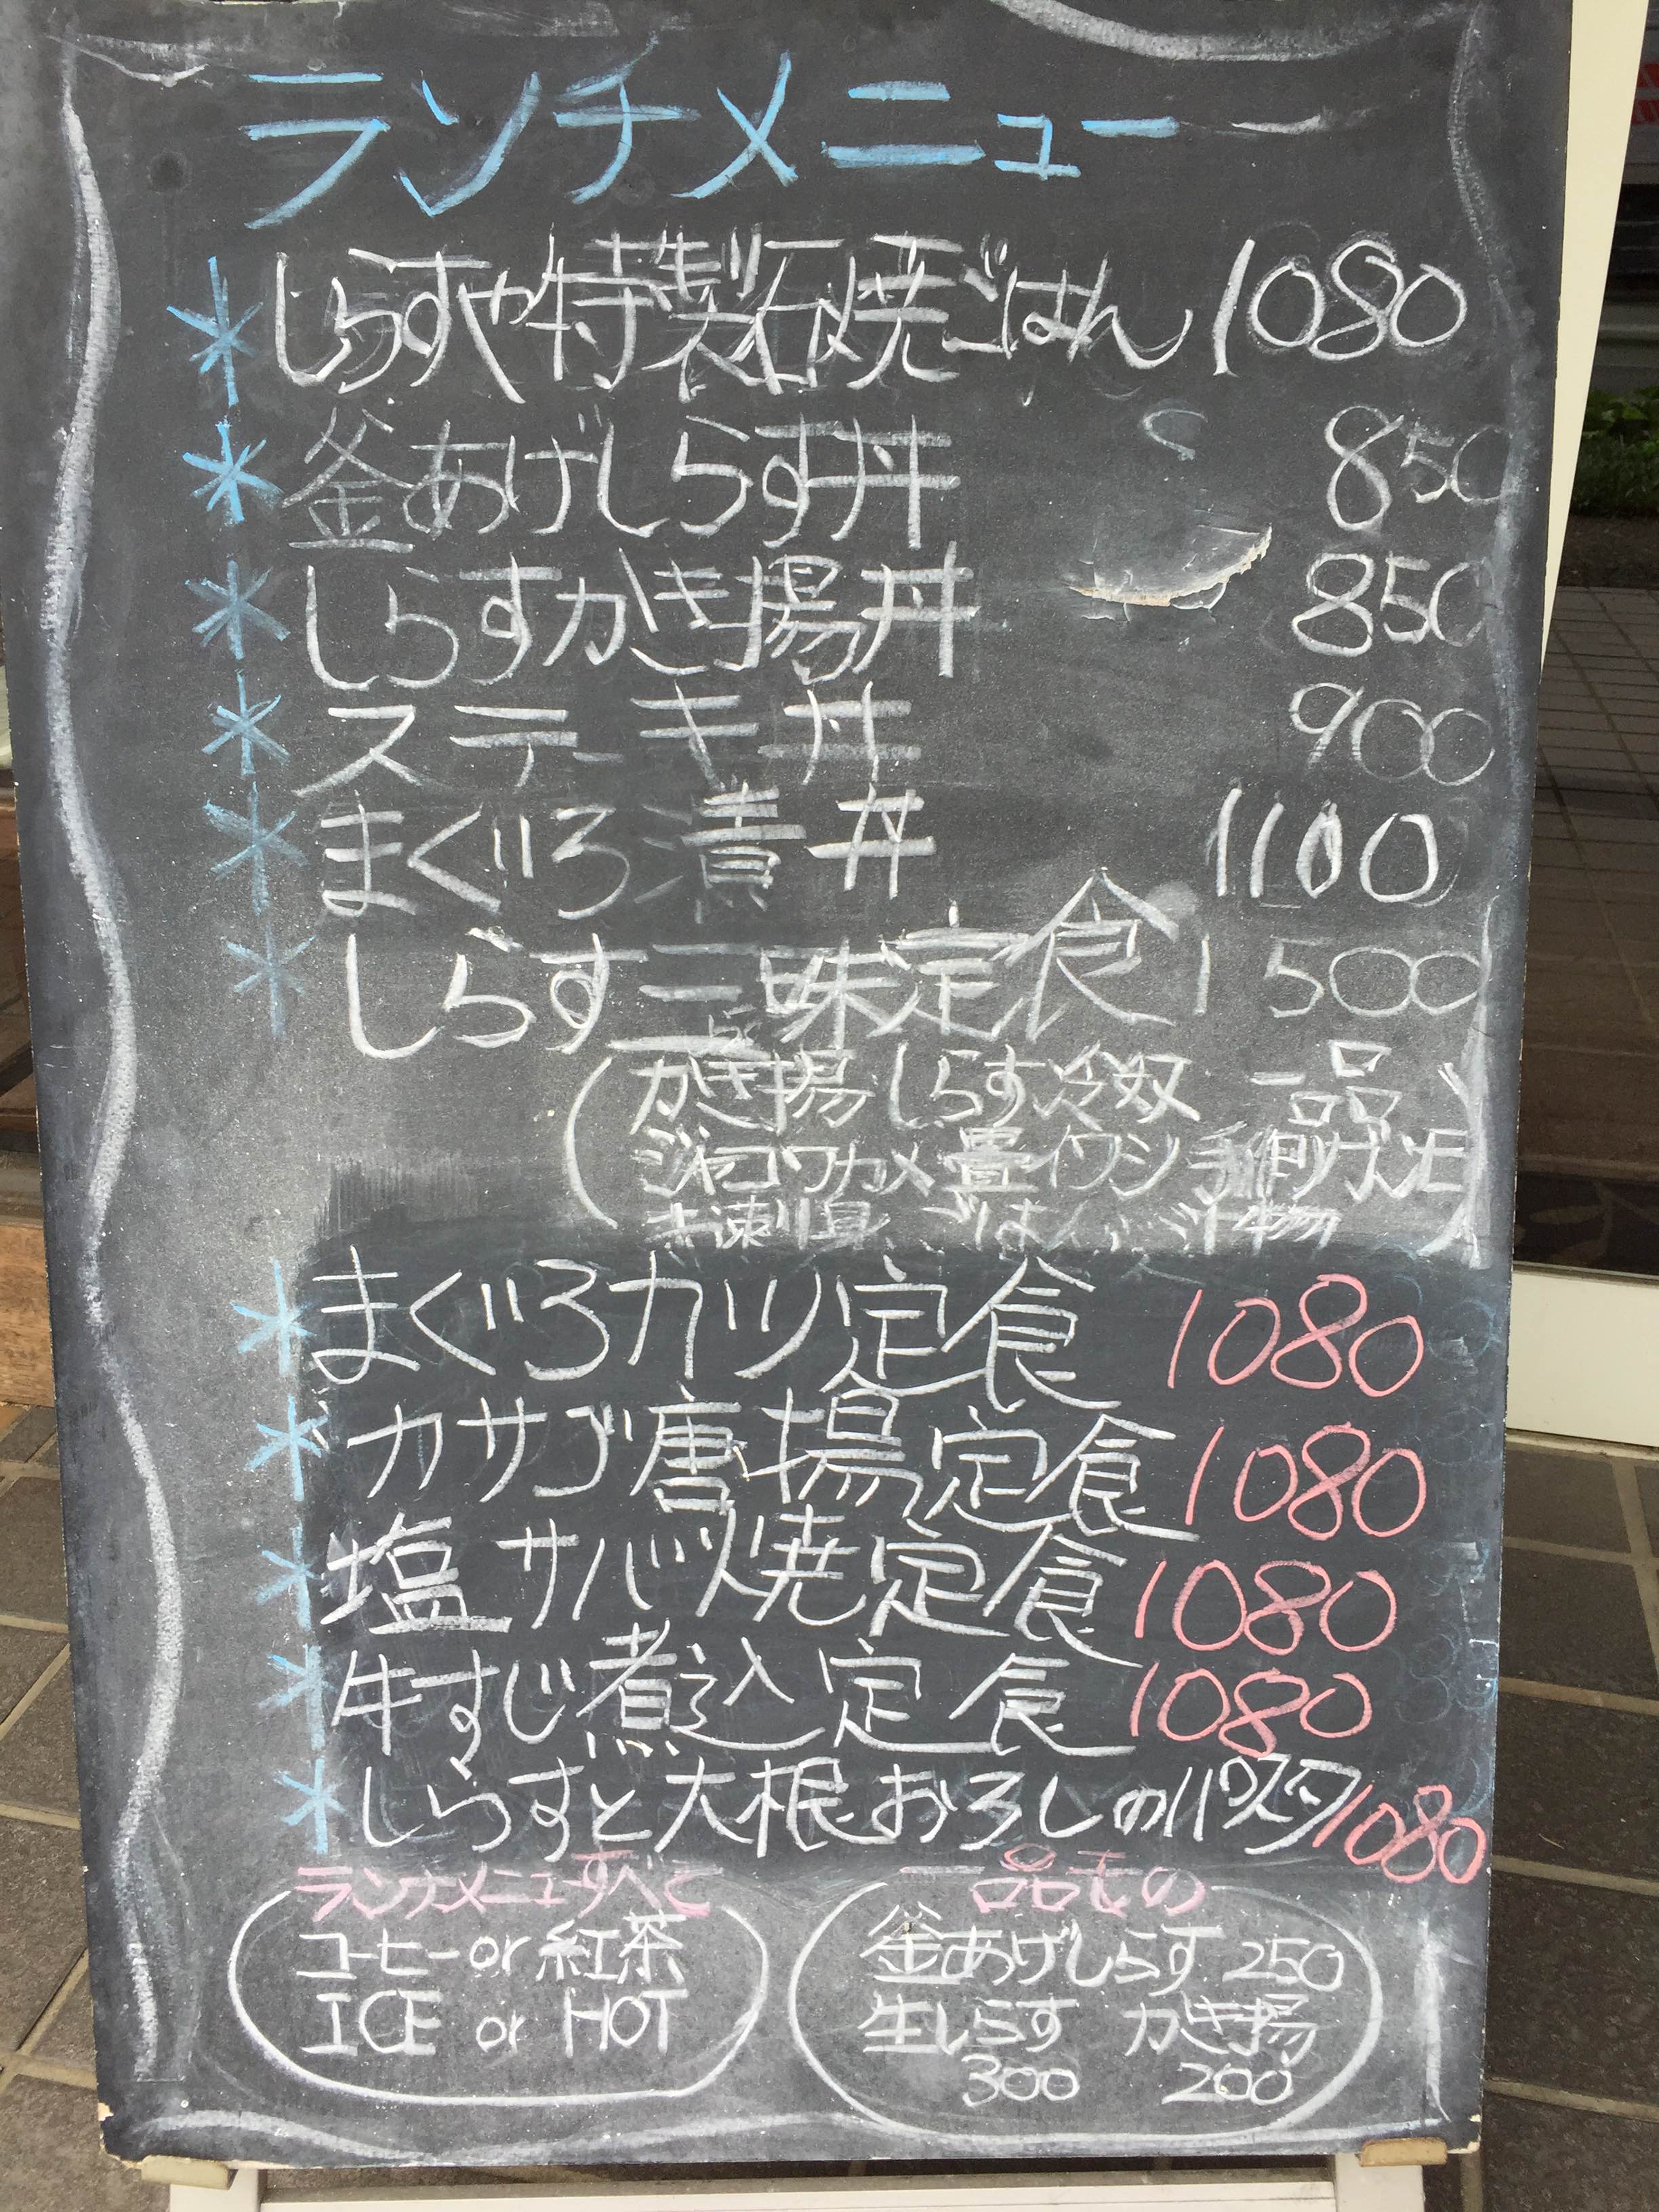 ランチメニュー
* しらすや特製石焼ごはん 1080
* 釜あげしらす丼 850
* しらすかき揚丼 850
* ステーキ丼 900
* まぐろ漬丼 1100
* しらす三昧定食 1500
(かき揚 しらす冷奴 一品
ジャコワカメ 畳イワシ
刺身 ごはん 汁物)
* まぐろカツ定食 1080
* カサゴ唐揚定食 1080
* 塩サバ焼定食 1080
* 牛すじ煮込定食 1080
* しらすと大根おろしのパスタ 1080
ランチメニューすべて
コーヒーor紅茶
ICE or HOT
一品もの
釜あげしらす 250
生しらす かき揚
300 200